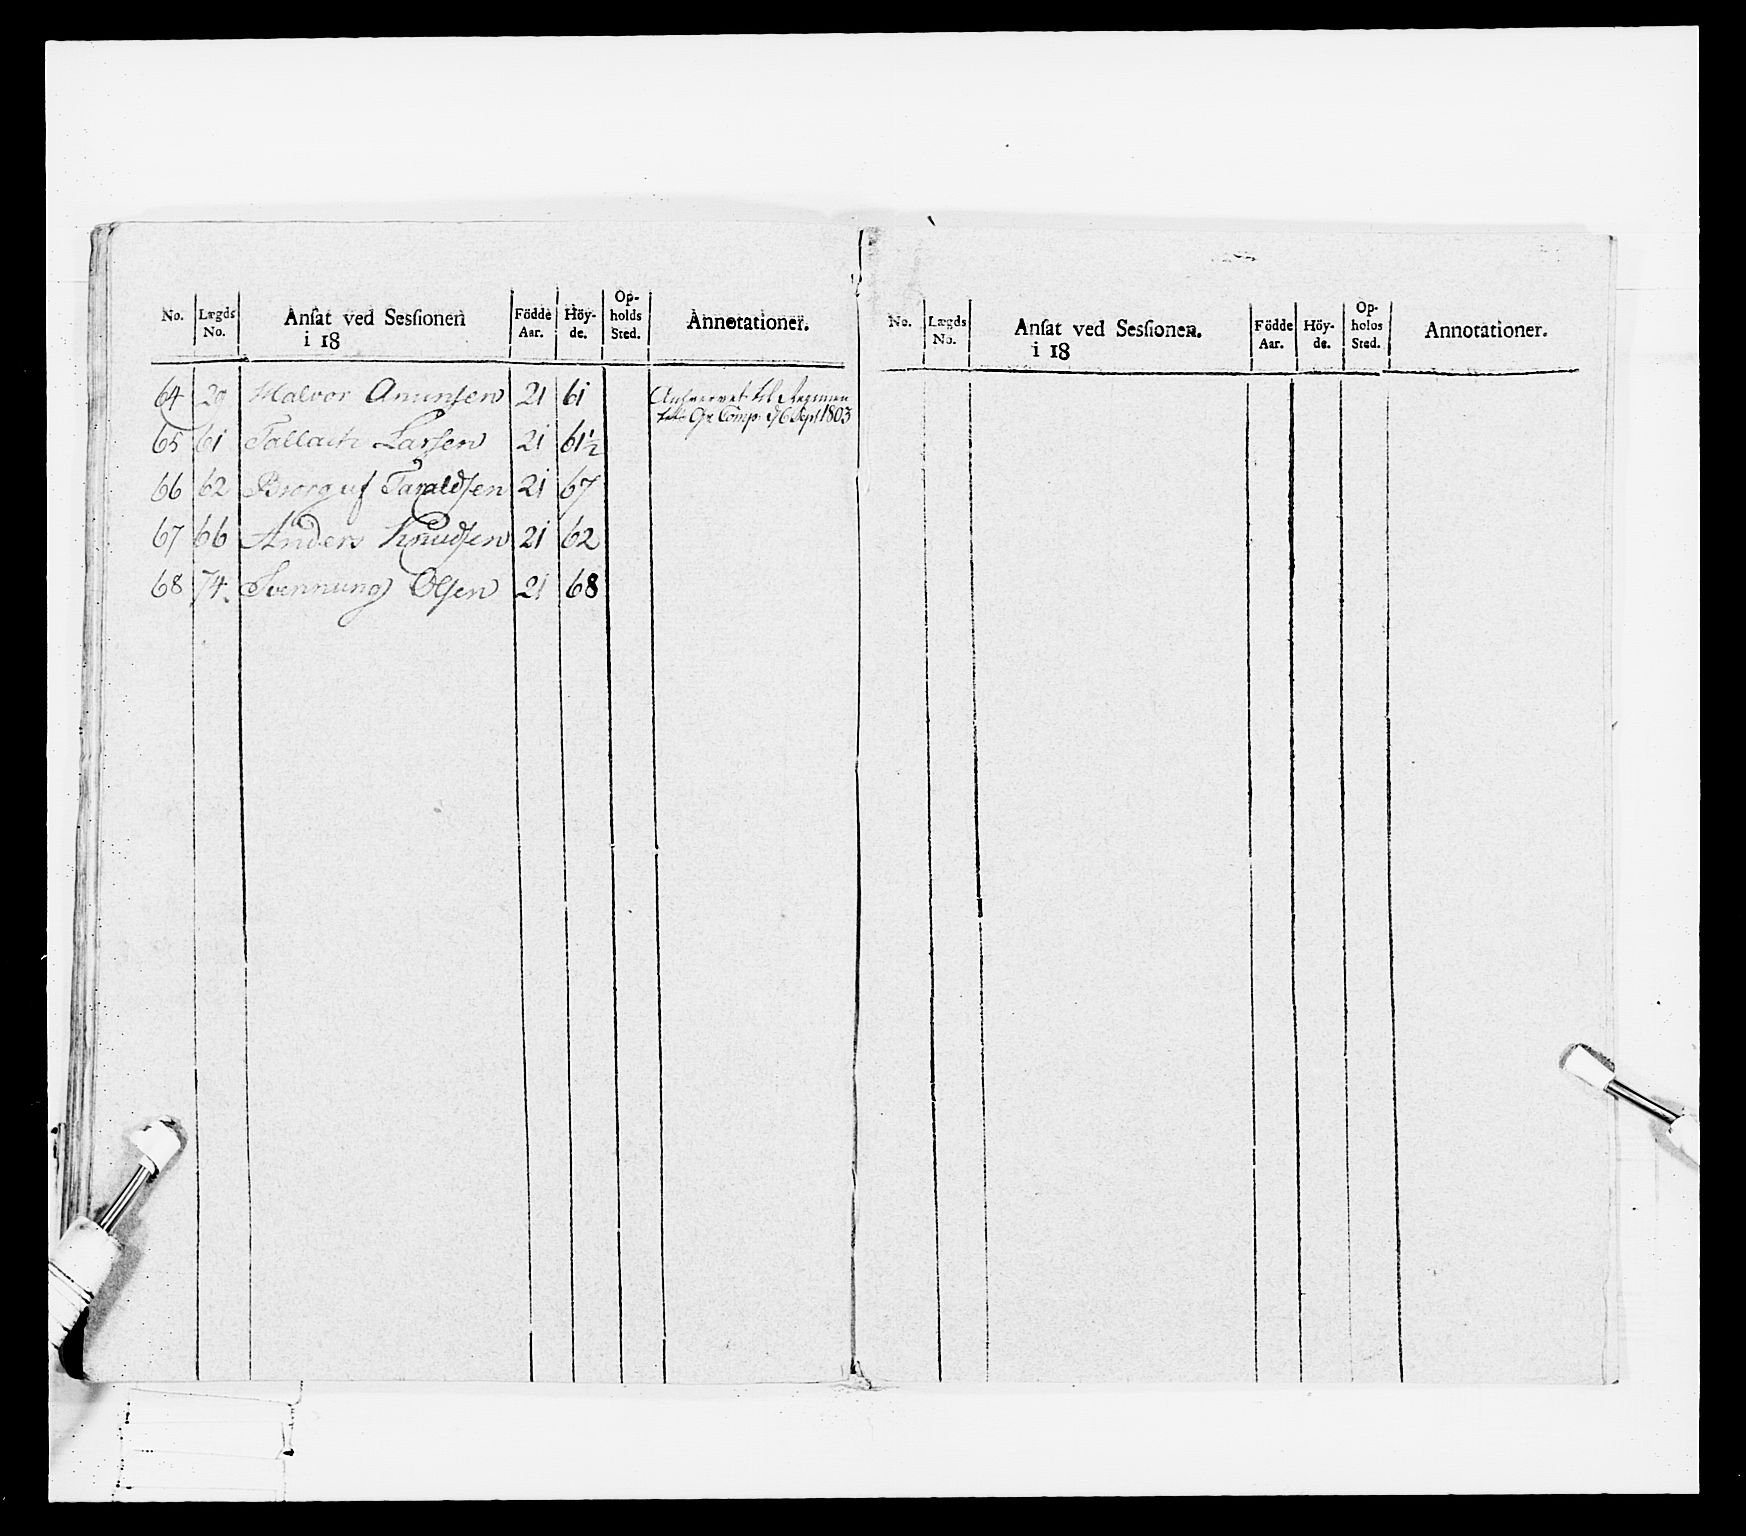 No. Lægds No. Ansat ved Sessionen i 18 Födde Aar. Höy-de. Op-holds Sted. Annotationer.
64 29 Halvor Anunsen 21 61 til Regimen
Gr Comp: d/6 Sept 1803
65 61 Tallach Larsen 21 61½
66 62 Brorguf Taraldsen 21 67
67 66 Anders Knudsen 21 62
68 74. Svennung Olsen 21 68
No. Lægds No. Ansat ved Sessionen. i 18 Födde Aar. Höy-de. Op-holds Sted. Annotationer.